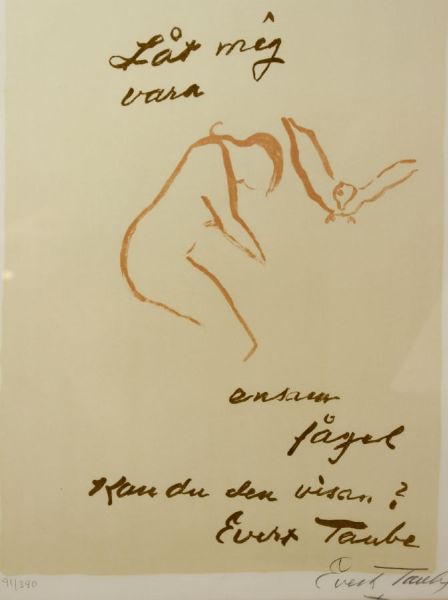 Låt mig
vara
ensam
fågel
Kan du den visan?
Evert Taube
91/390 Evert Taube